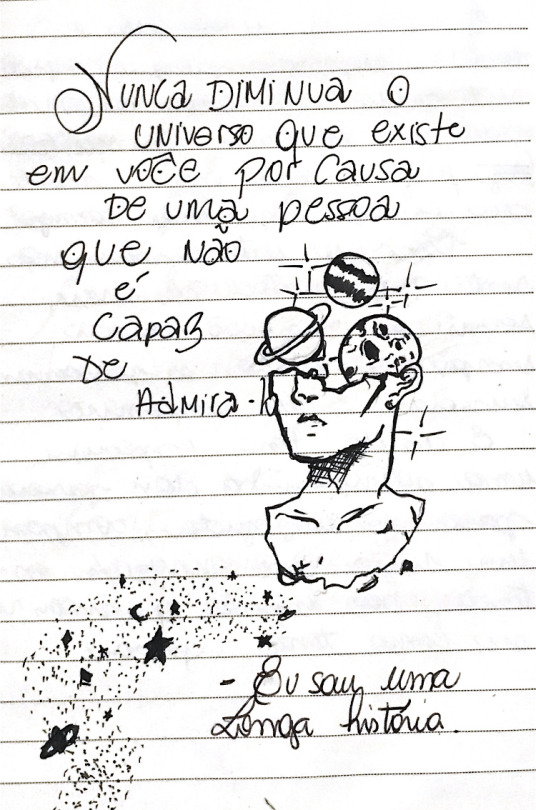 Nunca diminua o
universo que existe
em você por causa
de uma pessoa
que não
é
capaz
de
Admira-lo
- Eu sou uma
Longa história.